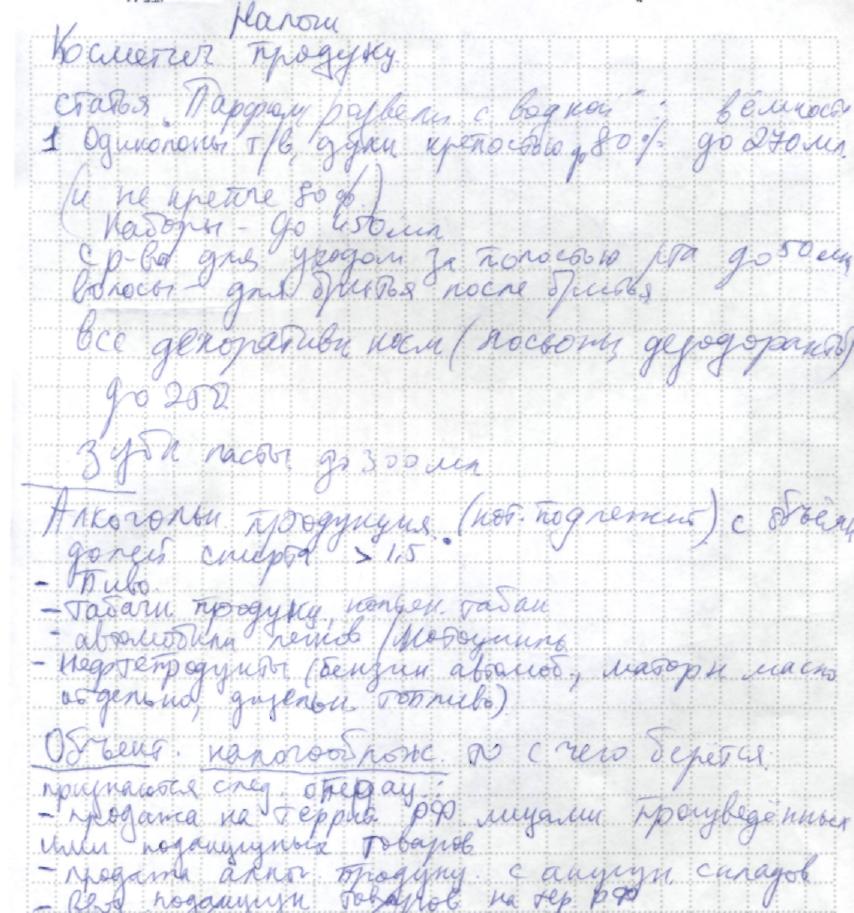 Налоги
Косметич продукц.
статья "Парфюм развели с водкой": в ёмкости
1 Одиколоны т/в, духи крепостью до 80% до 270мл.
(и не крепче 80%)
Наборы - до 450мл
ср-ва для уходом за полостью рта до 50 мл
волосы - для бритья после бритья
все декоративн косм (лосьоны, дезодоранты)
до 250
зубн пасты до 300 мл
Алкогольн. продукция (кот. подлежит) с объёмн
долей спирта > 1,5
- Пиво.
- табачн продукц,
- автомобили легков /мотоциклы
- нефтепродукты (бензин автомоб., маторн масло
отдельно, дизельн топливо)
Объект. налогооблож. то с чего берется.
признаются след. операц.:
- продажа на террит РФ лицами произведённых
ими подакцизных товаров
- продажа алког продукц. с акцизн складов
- подакцизн товаров на тер РФ